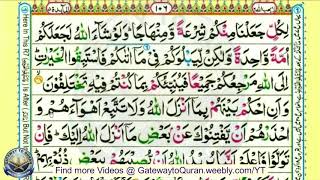 لِكُلٍّ جَعَلْنَا مِنْكُمْ شِرْعَةً وَّمِنْهَاجًا وَلَوْ شَآءَ اللّٰهُ لَجَعَلَكُمْ
اُمَّةً وَّاحِدَةً وَّلٰكِنْ لِّيَبْلُوَكُمْ فِيْ مَآ اٰتٰىكُمْ فَاسْتَبِقُوا الْخَيْرٰتِ
اِلَى اللّٰهِ مَرْجِعُكُمْ جَمِيْعًا فَيُنَبِّئُكُمْ بِمَا كُنْتُمْ فِيْهِ تَخْتَلِفُوْنَ
وَاَنِ احْكُمْ بَيْنَهُمْ بِمَآ اَنْزَلَ اللّٰهُ وَلَا تَتَّبِعْ اَهْوَآءَهُمْ وَ
احْذَرْهُمْ اَنْ يَّفْتِنُوْكَ عَنْ بَعْضِ مَآ اَنْزَلَ اللّٰهُ اِلَيْكَ فَاِنْ
تَوَلَّوْا فَاعْلَمْ اَنَّمَا يُرِيْدُ اللّٰهُ اَنْ يُّصِيْبَهُمْ بِبَعْضِ ذُنُوْبِهِمْ
Find more Videos @ GatewaytoQuran.weebly.com/YT